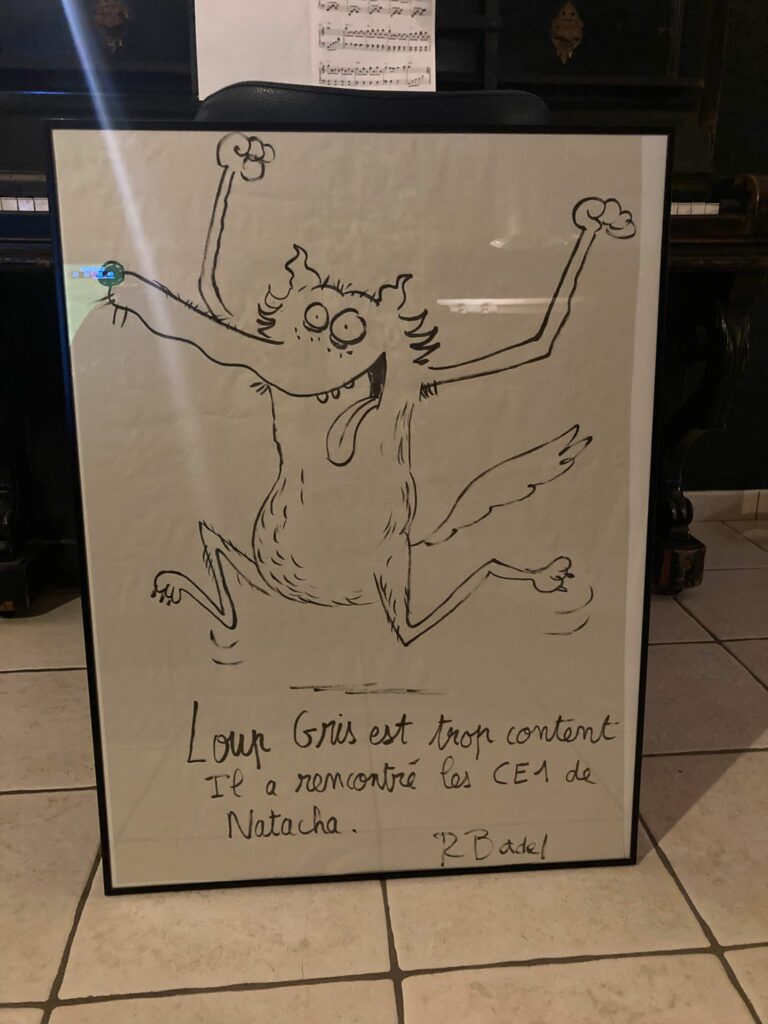 Loup Gris est trop content
Il a rencontré les CE1 de
Natacha.
R Badel